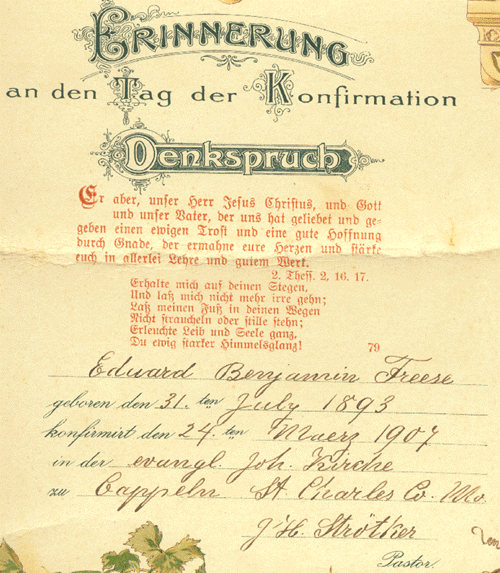 ERINNERUNG
an den Tag der Konfirmation
Denkspruch
Er aber, unser Herr Jesus Christus, und Gott
und unser Vater, der uns hat geliebet und ge-
geben einen ewigen Trost und eine gute Hoffnung
durch Gnade, der ermahne eure Herzen und stärke
euch in allerlei Lehre und gutem Werk.
2. Thess. 2, 16. 17.
Erhalte mich auf deinen Stegen,
Und laß mich nicht mehr irre gehn;
Laß meinen Fuß in deinen Wegen
Nicht straucheln oder stille stehn;
Erleuchte Leib und Seele ganz,
Du ewig starker Himmelsglanz! 79
Eduard Benjamin Freese
geboren den 31. ten July 1893
konfirmirt den 24. ten Maerz 1907
in der evangl. Joh. Kirche
zu Cappeln St Charles Co. Mo.
J. H. Strötker
Pastor.